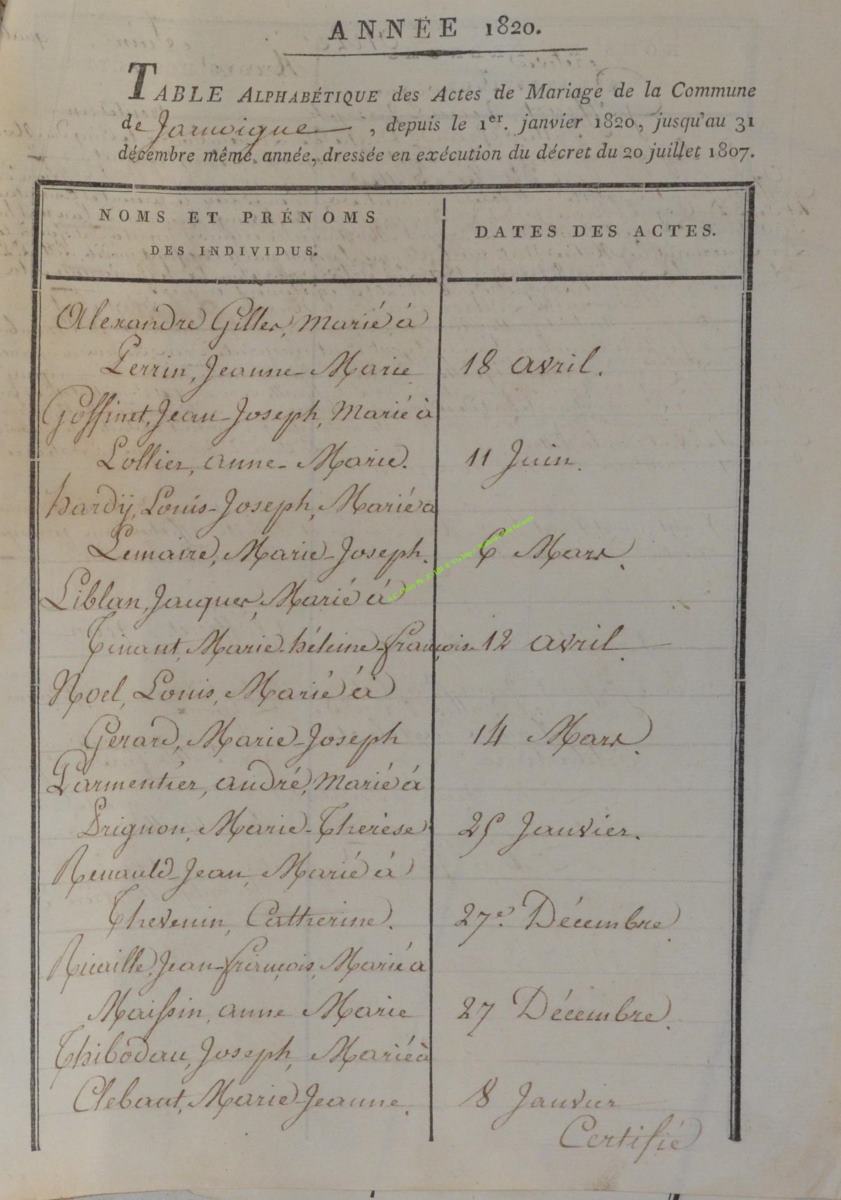 ANNÉE 1820.
TABLE ALPHABÉTIQUE des Actes de Mariage de la Commune
de Jamoigne, depuis le 1er. janvier 1820, jusqu'au 31
décembre même année, dressée en exécution du décret du 20 juillet 1807.
NOMS ET PRÉNOMS
DES INDIVIDUS.
DATES DES ACTES.
Alexandre Gilles, Marié à
Perrin, Jeanne-Marie 18 avril.
Goffinet, Jean-Joseph, Marié à
Lollier, anne-Marie. 11 Juin.
hardÿ, Louis-Joseph, Marié à
Lemaire, Marie-Joseph. 6 Mars.
Liblan, Jacques, Marié à
Tinant, Marie-héleine-françoise 12 avril.
Noel, Louis, Marié à
Gerard, Marie-Joseph 14 Mars.
Parmentier, andré, Marié à
Prignon, Marie-Therèse 25 Janvier.
Renauld-Jean, Marié à
Thevenin, Catherine. 27e. Décembre.
Ricaille, Jean-françois, Marié à
Maissin, anne Marie 27 Décembre.
Thibodau, Joseph, Marié à
Clebaut, Marie-Jeanne. 8 Janvier
Certifié